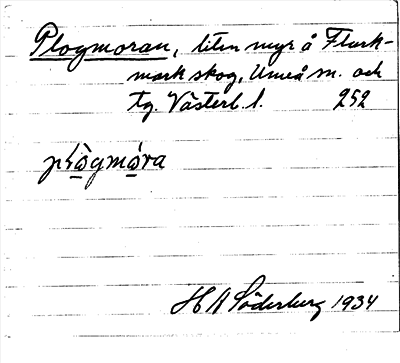 Plogmoran, liten myr å Flurk-
mark skog, Umeå sn. och
tg. Västerb. l. 252
plògmóra
H A Söderberg 1934